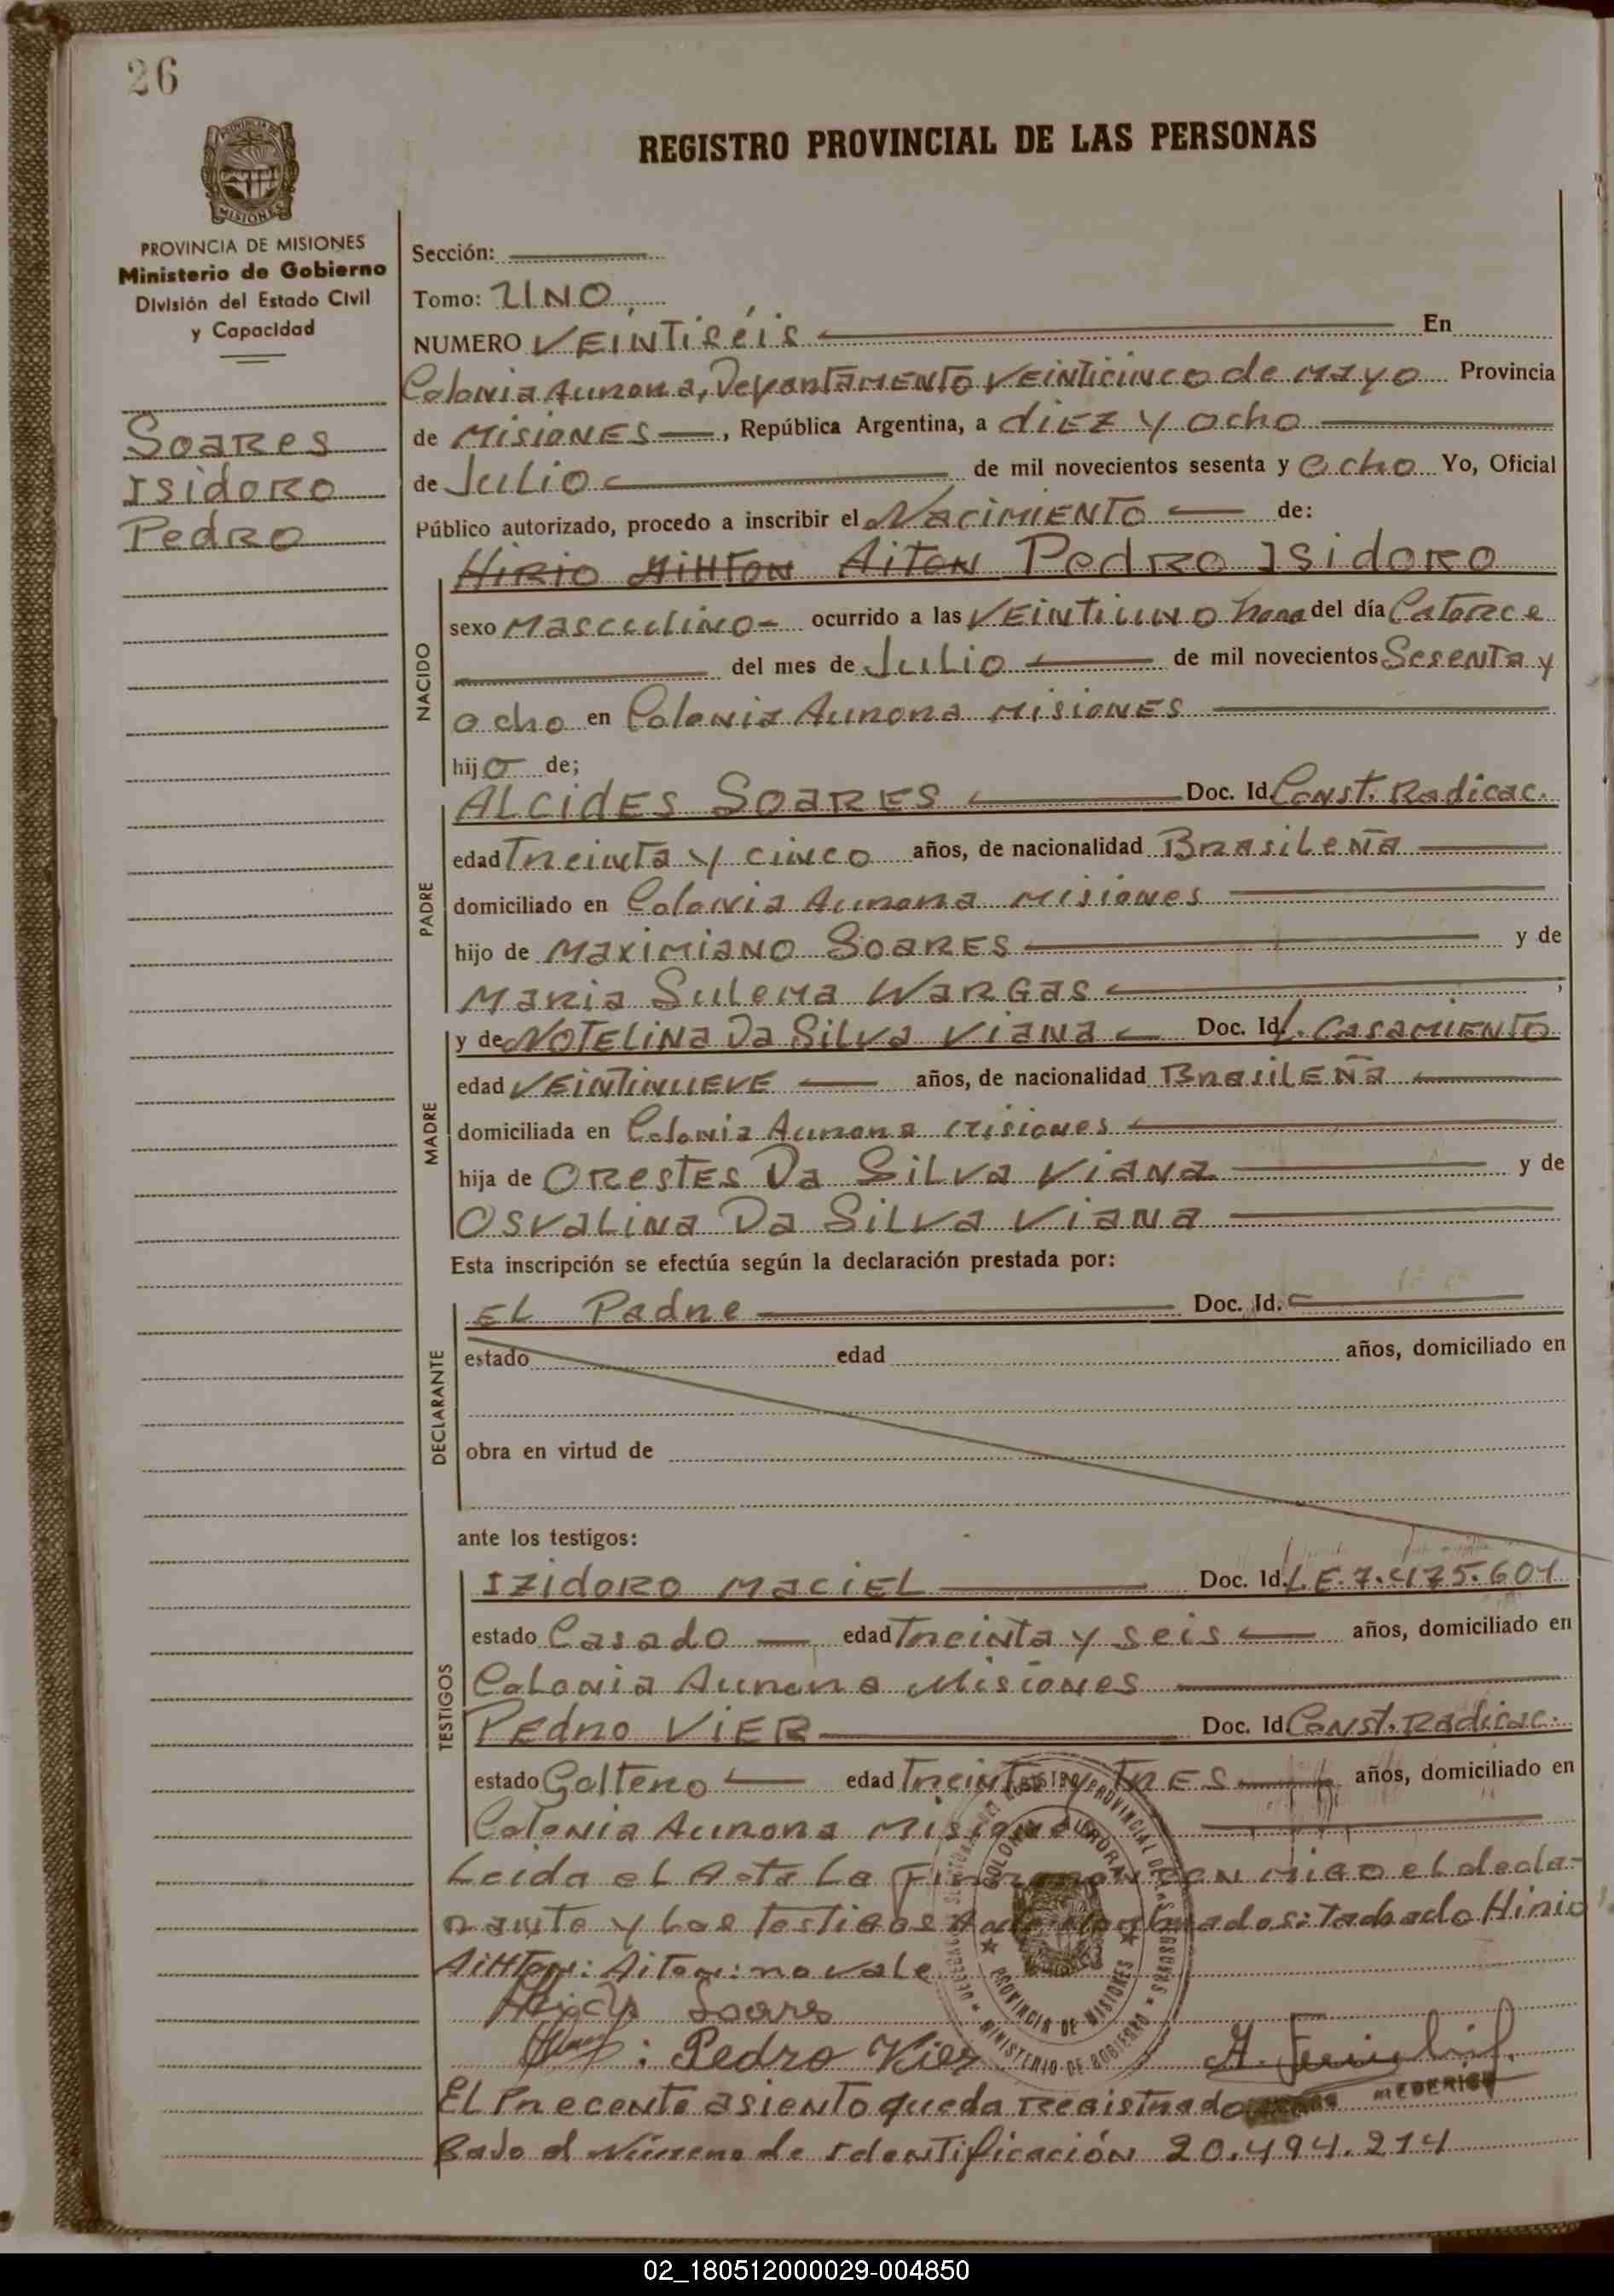 26
PROVINCIA DE MISIONES
Ministerio de Gobierno
División del Estado Civil
y Capacidad
Soares
Isidoro
Pedro
REGISTRO PROVINCIAL DE LAS PERSONAS
Sección:
Tomo: UNO
NUMERO VEINTISéis En
Colonia Aurora, Departamento VEINTICINCO de mayo Provincia
de MISIONES, República Argentina, a diEZ y ocho
de Julio de mil novecientos sesenta y ocho Yo, Oficial
Público autorizado, procedo a inscribir el NACIMIENTO de:
Hirio AiHTon AiTon Pedro Isidoro
NACIDO
sexo Masculino ocurrido a las VEINTIUNO hora del día Catorce
del mes de Julio de mil novecientos Sesenta y
ocho en Colonia Aurora MISIONES
hijo de;
PADRE
ALCIDES SOARES Doc. Id. Const. Radicac.
edad Treinta y cinco años, de nacionalidad Brasileña
domiciliado en Colonia Aurora Misiones
hijo de Maximiano Soares y de
Maria Sulema Wargas ;
MADRE
y de NOTELINA Da Silva Viana Doc. Id. L. CASAMIENTO
edad VEINTINUEVE años, de nacionalidad Brasileña
domiciliada en Colonia Aurora Misiones
hija de ORESTES Da Silva Viana y de
OSVALINA Da Silva Viana
Esta inscripción se efectúa según la declaración prestada por:
DECLARANTE
EL Padre Doc. Id.
estado edad años, domiciliado en
obra en virtud de
ante los testigos:
TESTIGOS
IZIDORO MACIEL Doc. Id. L.E. 7.475.601
estado Casado edad Treinta y seis años, domiciliado en
Colonia Aurora Misiones
Pedro VIER Doc. Id. Const. Radicac.
estado Soltero edad Treinta y TrES años, domiciliado en
Colonia Aurora Misiones
Leida el Acta La Firmaron CON MIGO el decla-
rante y los testigos nombrados: Tadado Hirio
AiHTon: AiTon: no vale
Soares
: Pedro Vier
MEDERICH
El Precente asiento queda Registrado
Bajo el Número de Identificación 20.494.214
REGISTRO PROVINCIAL DE LAS PERSONAS
MINISTERIO DE GOBIERNO
COLONIA AURORA
PROVINCIA DE MISIONES
02_180512000029-004850